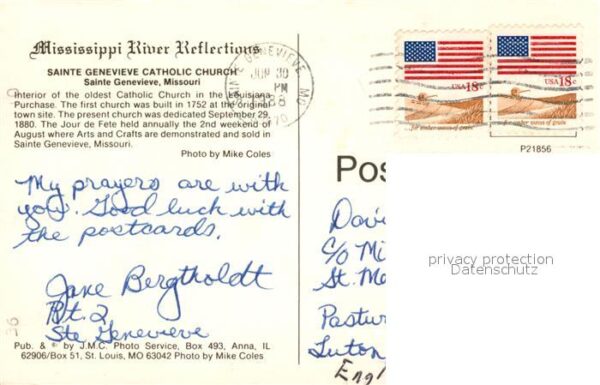 Mississippi River Reflections
SAINTE GENEVIEVE CATHOLIC CHURCH
Sainte Genevieve, Missouri
Interior of the oldest Catholic Church in the Louisiana
Purchase. The first church was built in 1752 at the original
town site. The present church was dedicated September 29,
1880. The Jour de Fete held annually the 2nd weekend of
August where Arts and Crafts are demonstrated and sold in
Sainte Genevieve, Missouri.
Photo by Mike Coles
My prayers are with
you. Good luck with
the postcards.
Jane Bergtholdt
Rt. 2
Ste Genevieve
Pub. & © by J.M.C. Photo Service, Box 493, Anna, IL
62906/Box 51, St. Louis, MO 63042 Photo by Mike Coles
GENEVIEVE MO
30
PM
USA 18c
USA 18c
for amber waves of grain
for amber waves of grain
P21856
Pos
Davi
c/o Mi
St. Ma
Pastur
Luton
Engl
privacy protection
Datenschutz